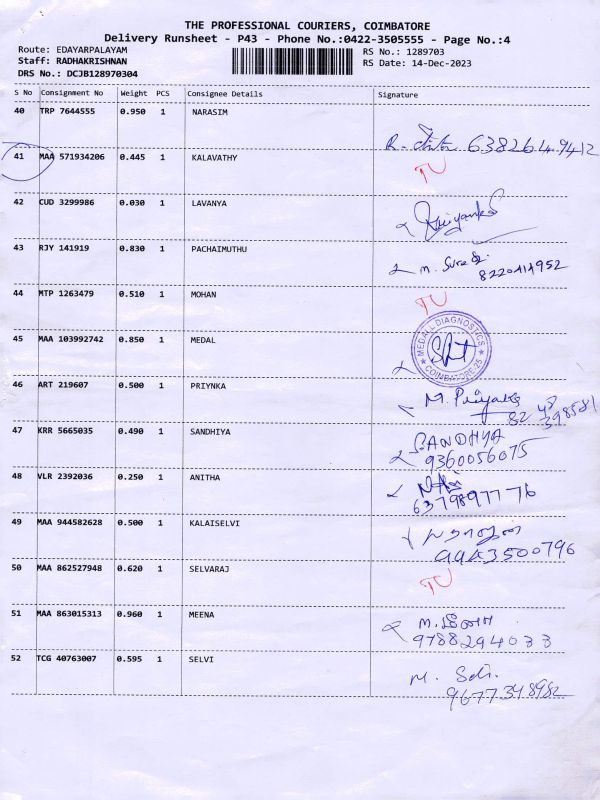 THE PROFESSIONAL COURIERS, COIMBATORE
Delivery Runsheet - P43 - Phone No.:0422-3505555 - Page No.:4
Route: EDAYARPALAYAM
Staff: RADHAKRISHNAN
DRS No.: DCJB128970304
RS No.: 1289703
RS Date: 14-Dec-2023
S No Consignment No Weight PCS Consignee Details Signature
40 TRP 7644555 0.950 1 NARASIM
6382649412
41 MAA 571934206 0.445 1 KALAVATHY
TU
42 CUD 3299986 0.030 1 LAVANYA
Priyanka
43 RJY 141919 0.830 1 PACHAIMUTHU
M. Suresh
8220414952
44 MTP 1263479 0.510 1 MOHAN
TU
45 MAA 103992742 0.850 1 MEDAL
MEDALL DIAGNOSTICS
COIMBATORE-25
46 ART 219607 0.500 1 PRIYNKA
M. Priyanka
82 48
398581
47 KRR 5665035 0.490 1 SANDHIYA
S.ANDHYA
9360056075
48 VLR 2392036 0.250 1 ANITHA
6379897776
49 MAA 944582628 0.500 1 KALAISELVI
50 MAA 862527948 0.620 1 SELVARAJ
TU
51 MAA 863015313 0.960 1 MEENA
ம.மீனா
9788294033
52 TCG 40763007 0.595 1 SELVI
M. Selvi.
9677348982